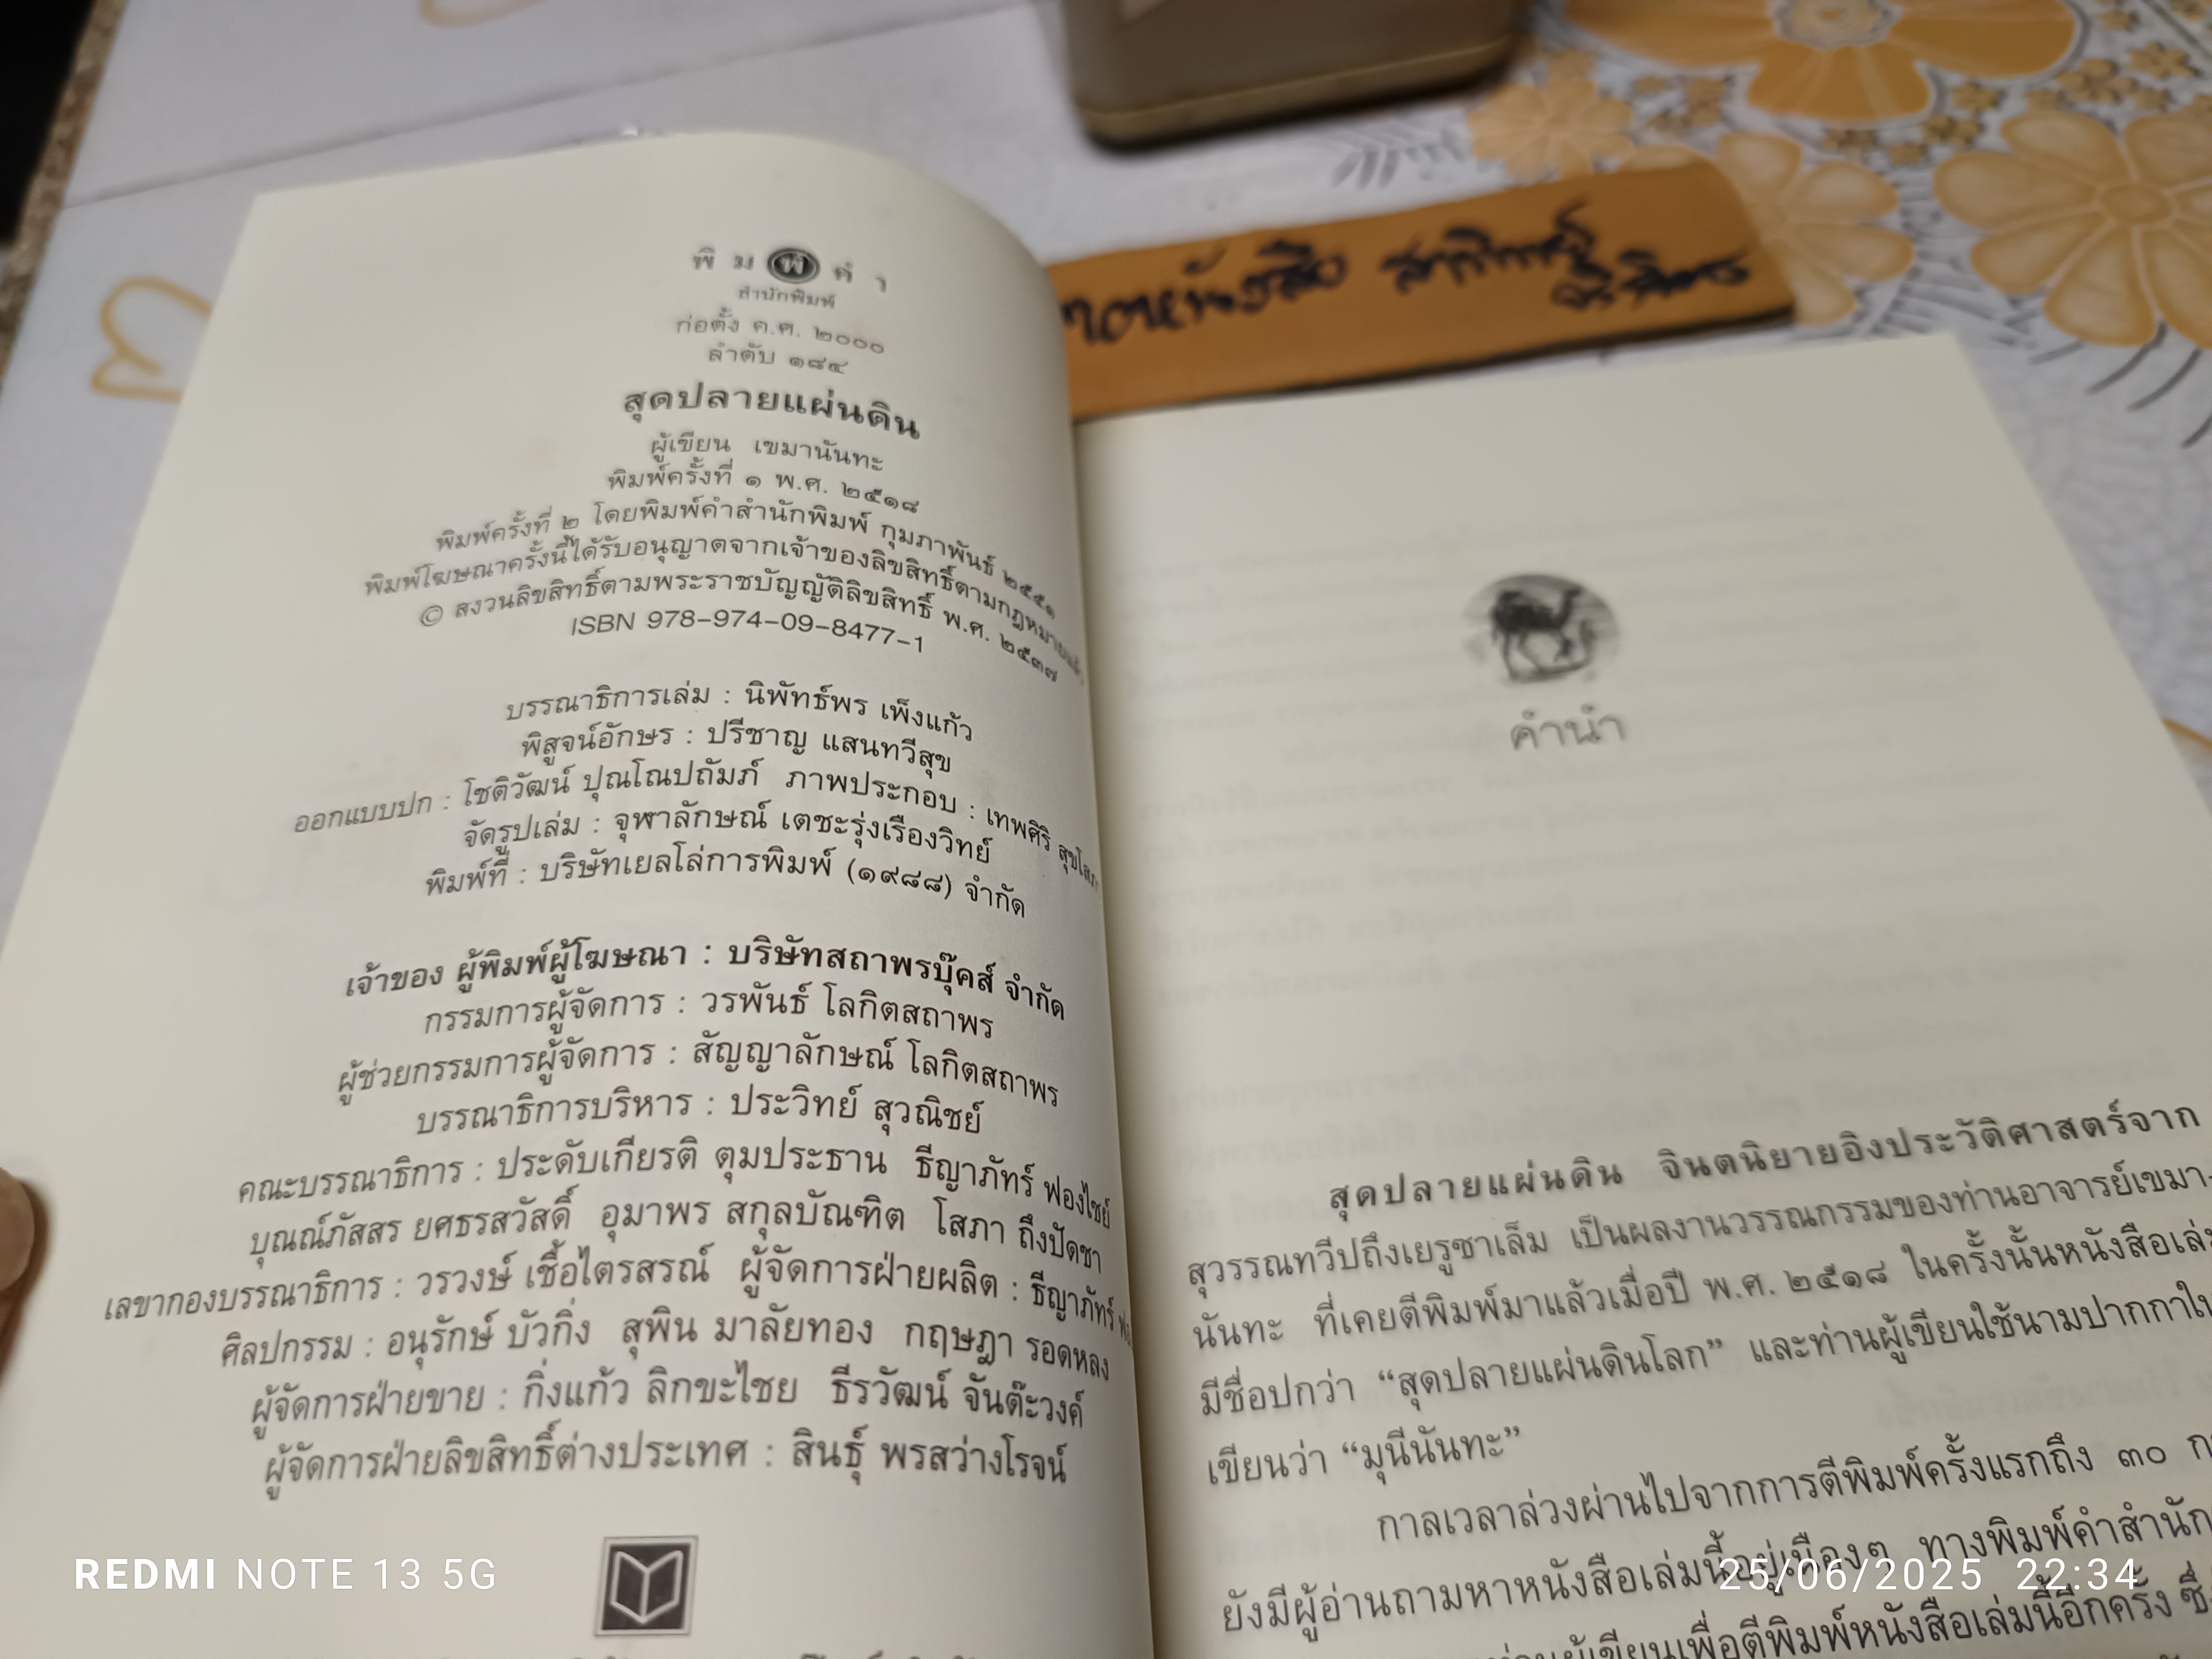 พิมพ์คำ
สำนักพิมพ์
ก่อตั้ง ค.ศ. ๒๐๐๐
ลำดับ ๑๘๔
สุดปลายแผ่นดิน
ผู้เขียน เขมานันทะ
พิมพ์ครั้งที่ ๑ พ.ศ. ๒๕๑๘
พิมพ์ครั้งที่ ๒ โดยพิมพ์คำสำนักพิมพ์ กุมภาพันธ์ ๒๕๕๑
พิมพ์โฆษณาครั้งนี้ได้รับอนุญาตจากเจ้าของลิขสิทธิ์ตามกฎหมายแล้ว
© สงวนลิขสิทธิ์ตามพระราชบัญญัติลิขสิทธิ์ พ.ศ. ๒๕๓๗
ISBN 978-974-09-8477-1
บรรณาธิการเล่ม : นิพัทธ์พร เพ็งแก้ว
พิสูจน์อักษร : ปรีชาญ แสนทวีสุข
ออกแบบปก : โชติวัฒน์ ปุณโณปถัมภ์ ภาพประกอบ : เทพศิริ สุขโสภา
จัดรูปเล่ม : จุฬาลักษณ์ เตชะรุ่งเรืองวิทย์
พิมพ์ที่ : บริษัทเยลโล่การพิมพ์ (๑๙๘๘) จำกัด
เจ้าของ ผู้พิมพ์ผู้โฆษณา : บริษัทสถาพรบุ๊คส์ จำกัด
กรรมการผู้จัดการ : วรพันธ์ โลกิตสถาพร
ผู้ช่วยกรรมการผู้จัดการ : สัญญาลักษณ์ โลกิตสถาพร
บรรณาธิการบริหาร : ประวิทย์ สุวณิชย์
คณะบรรณาธิการ : ประดับเกียรติ ตุมประธาน ธีญาภัทร์ ฟองไชย์
บุณณ์ภัสสร ยศธรสวัสดิ์ อุมาพร สกุลบัณฑิต โสภา ถึงปัดชา
เลขากองบรรณาธิการ : วรวงษ์ เชื้อไตรสรณ์ ผู้จัดการฝ่ายผลิต : ธีญาภัทร์
ศิลปกรรม : อนุรักษ์ บัวกิ่ง สุพิน มาลัยทอง กฤษฎา รอดหลง
ผู้จัดการฝ่ายขาย : กิ่งแก้ว ลิกขะไชย ธีรวัฒน์ จันต๊ะวงค์
ผู้จัดการฝ่ายลิขสิทธิ์ต่างประเทศ : สินธุ์ พรสว่างโรจน์
คำนำ
สุดปลายแผ่นดิน จินตนิยายอิงประวัติศาสตร์จาก
สุวรรณทวีปถึงเยรูซาเล็ม เป็นผลงานวรรณกรรมของท่านอาจารย์เขมา-
นันทะ ที่เคยตีพิมพ์มาแล้วเมื่อปี พ.ศ. ๒๕๑๘ ในครั้งนั้นหนังสือเล่ม
มีชื่อปกว่า “สุดปลายแผ่นดินโลก” และท่านผู้เขียนใช้นามปากกาใน
เขียนว่า “มุนีนันทะ”
กาลเวลาล่วงผ่านไปจากการตีพิมพ์ครั้งแรกถึง ๓๐
ยังมีผู้อ่านถามหาหนังสือเล่มนี้อยู่เนืองๆ ทางพิมพ์คำสำนัก
ผู้เขียนเพื่อตีพิมพ์หนังสือเล่มนี้อีกครั้ง ซึ่
REDMI NOTE 13 5G
25/06/2025 22:34